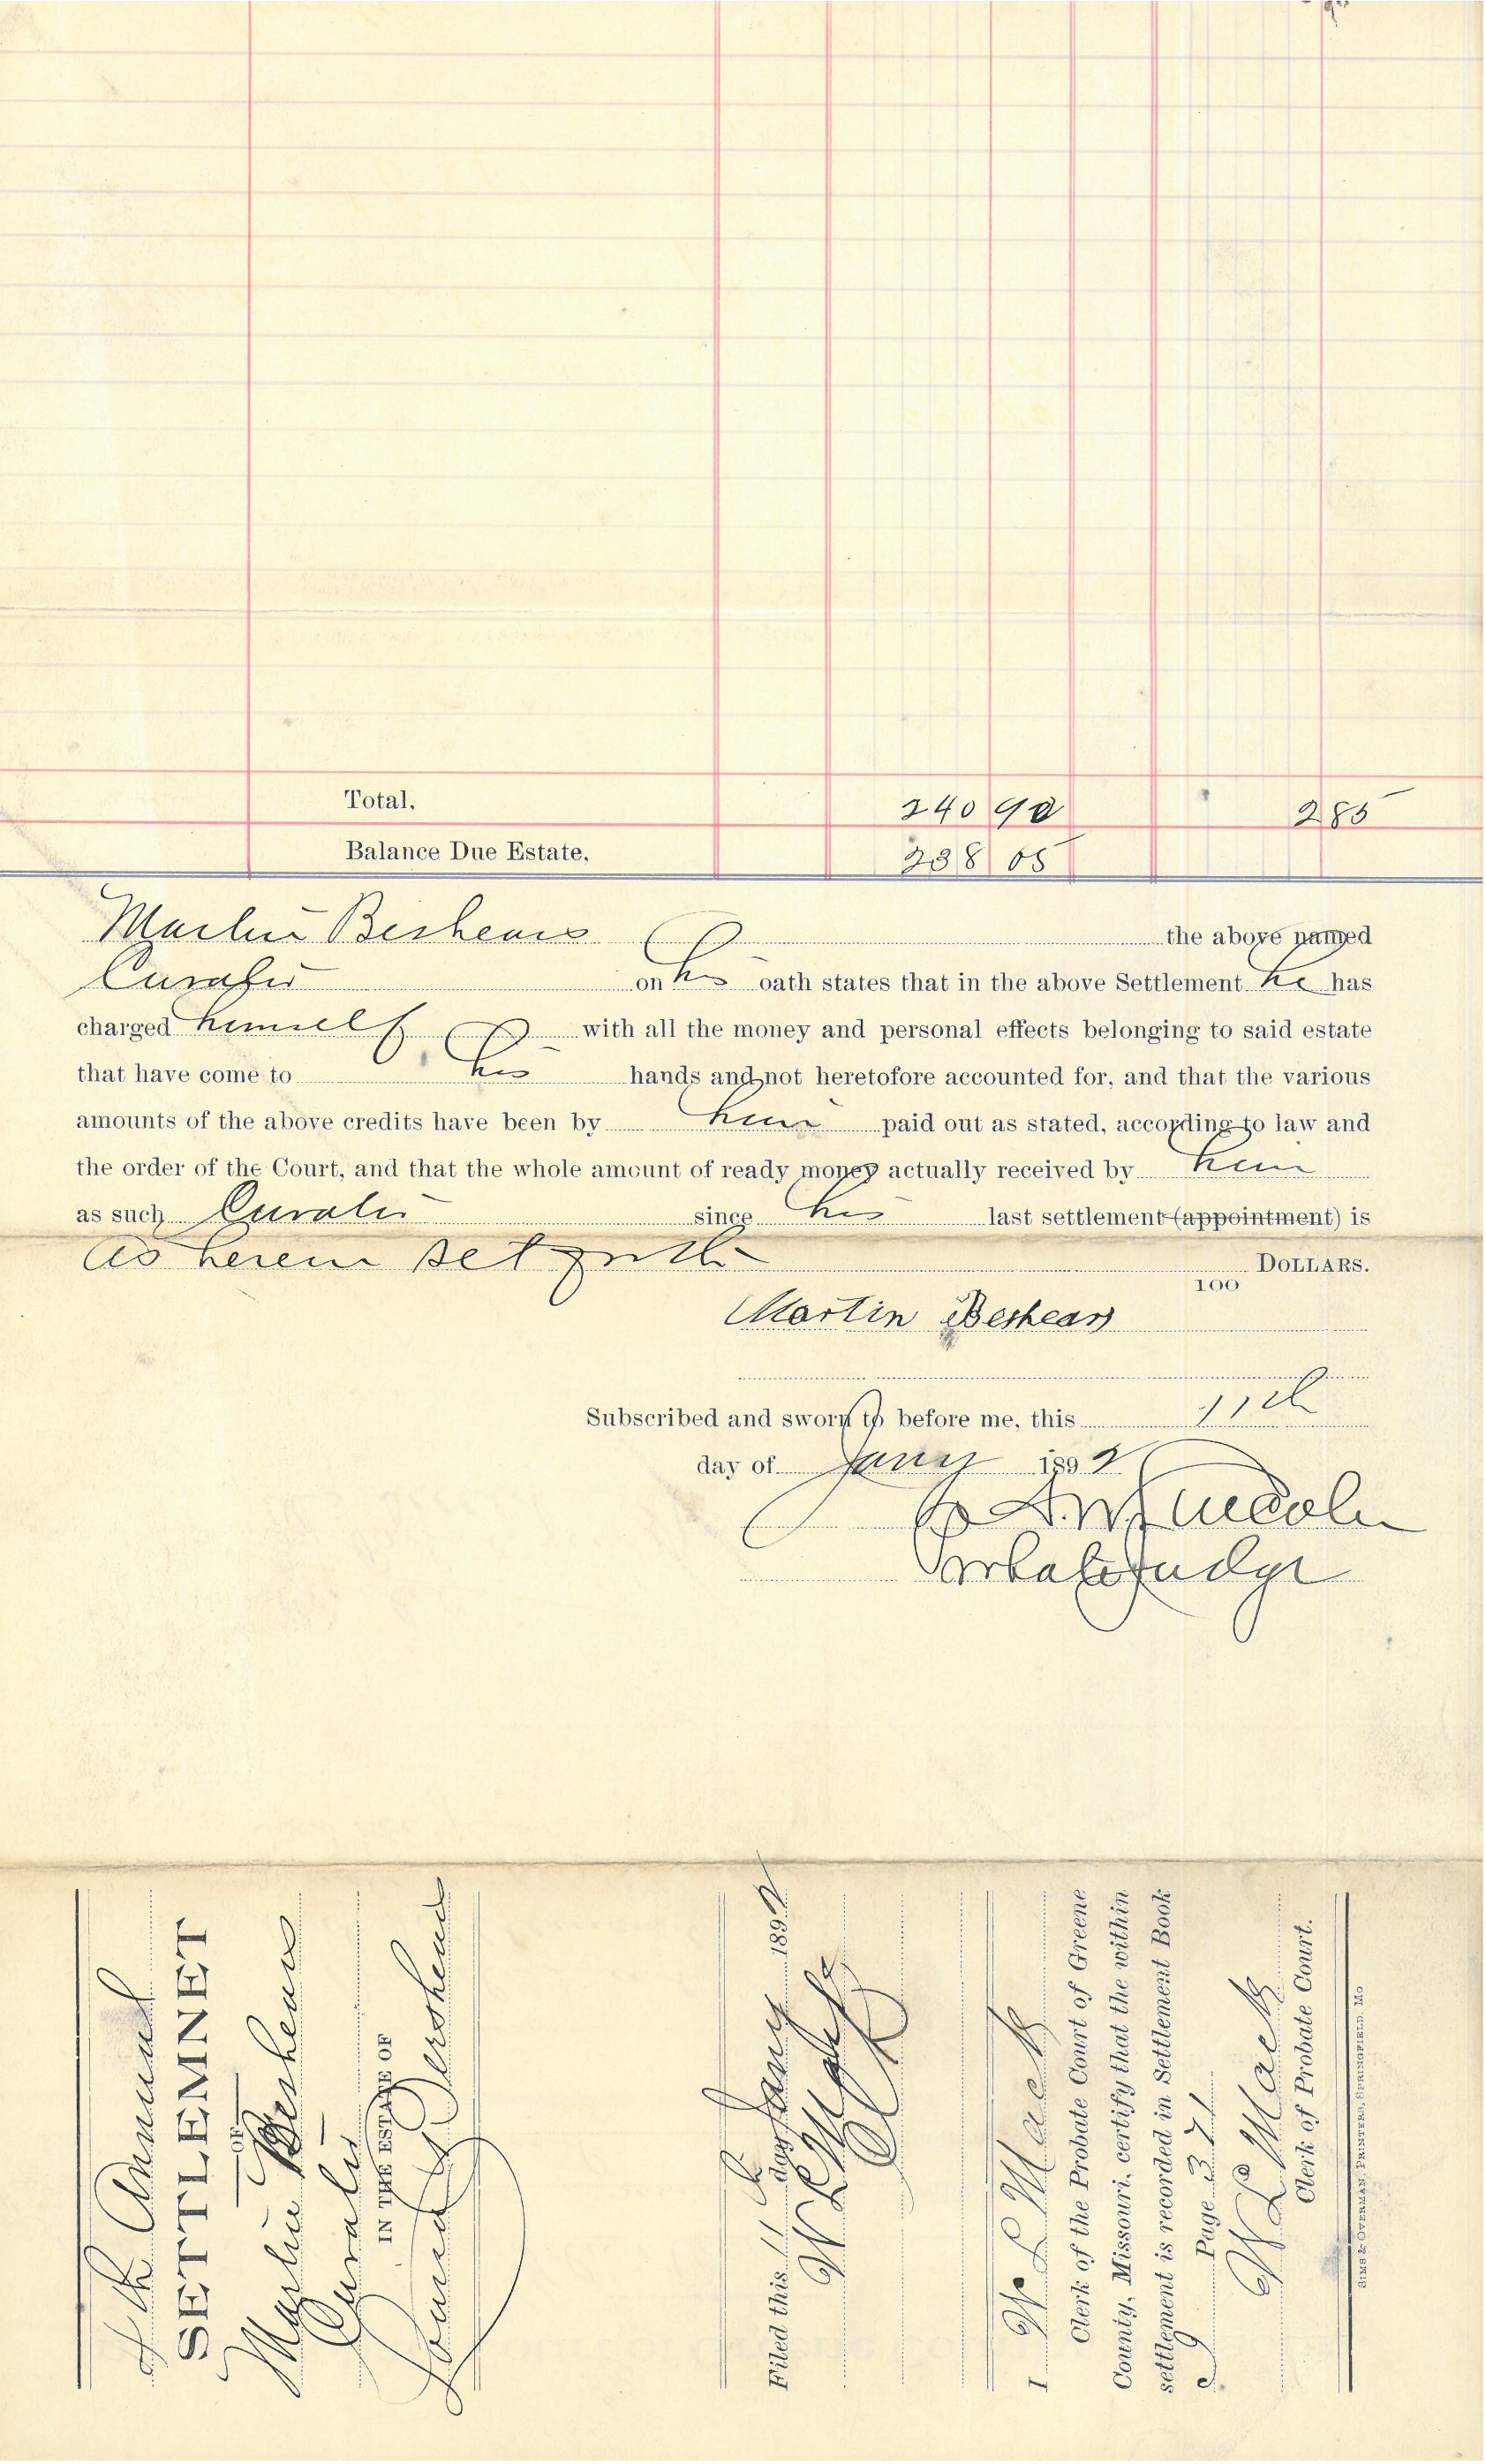 Total. 240 90 285
Balance Due Estate. 238 05
Martin Beshears the above named
Curator on his oath states that in the above Settlement he has
charged himself with all the money and personal effects belonging to said estate
that have come to his hands and not heretofore accounted for, and that the various
amounts of the above credits have been by him paid out as stated, according to law and
the order of the Court, and that the whole amount of ready money actually received by him
as such Curator since his last settlement (appointment) is
as herein set forth DOLLARS.
100
Martin Beshears
Subscribed and sworn to before me, this 11th
day of Jany 1892
A.W. Lincoln
Probate Judge
4th Annual
SETTLEMNET
OF
Martin Beshears
Curator
IN THE ESTATE OF
Beshears
Filed this 11 day Jany 1892
W L Mack
Clk
I W L Mack
Clerk of the Probate Court of Greene
County, Missouri, certify that the within
settlement is recorded in Settlement Book
Page 371
W L Mack
Clerk of Probate Court.
SIMS & OVERMAN, PRINTERS, SPRINGFIELD, MO